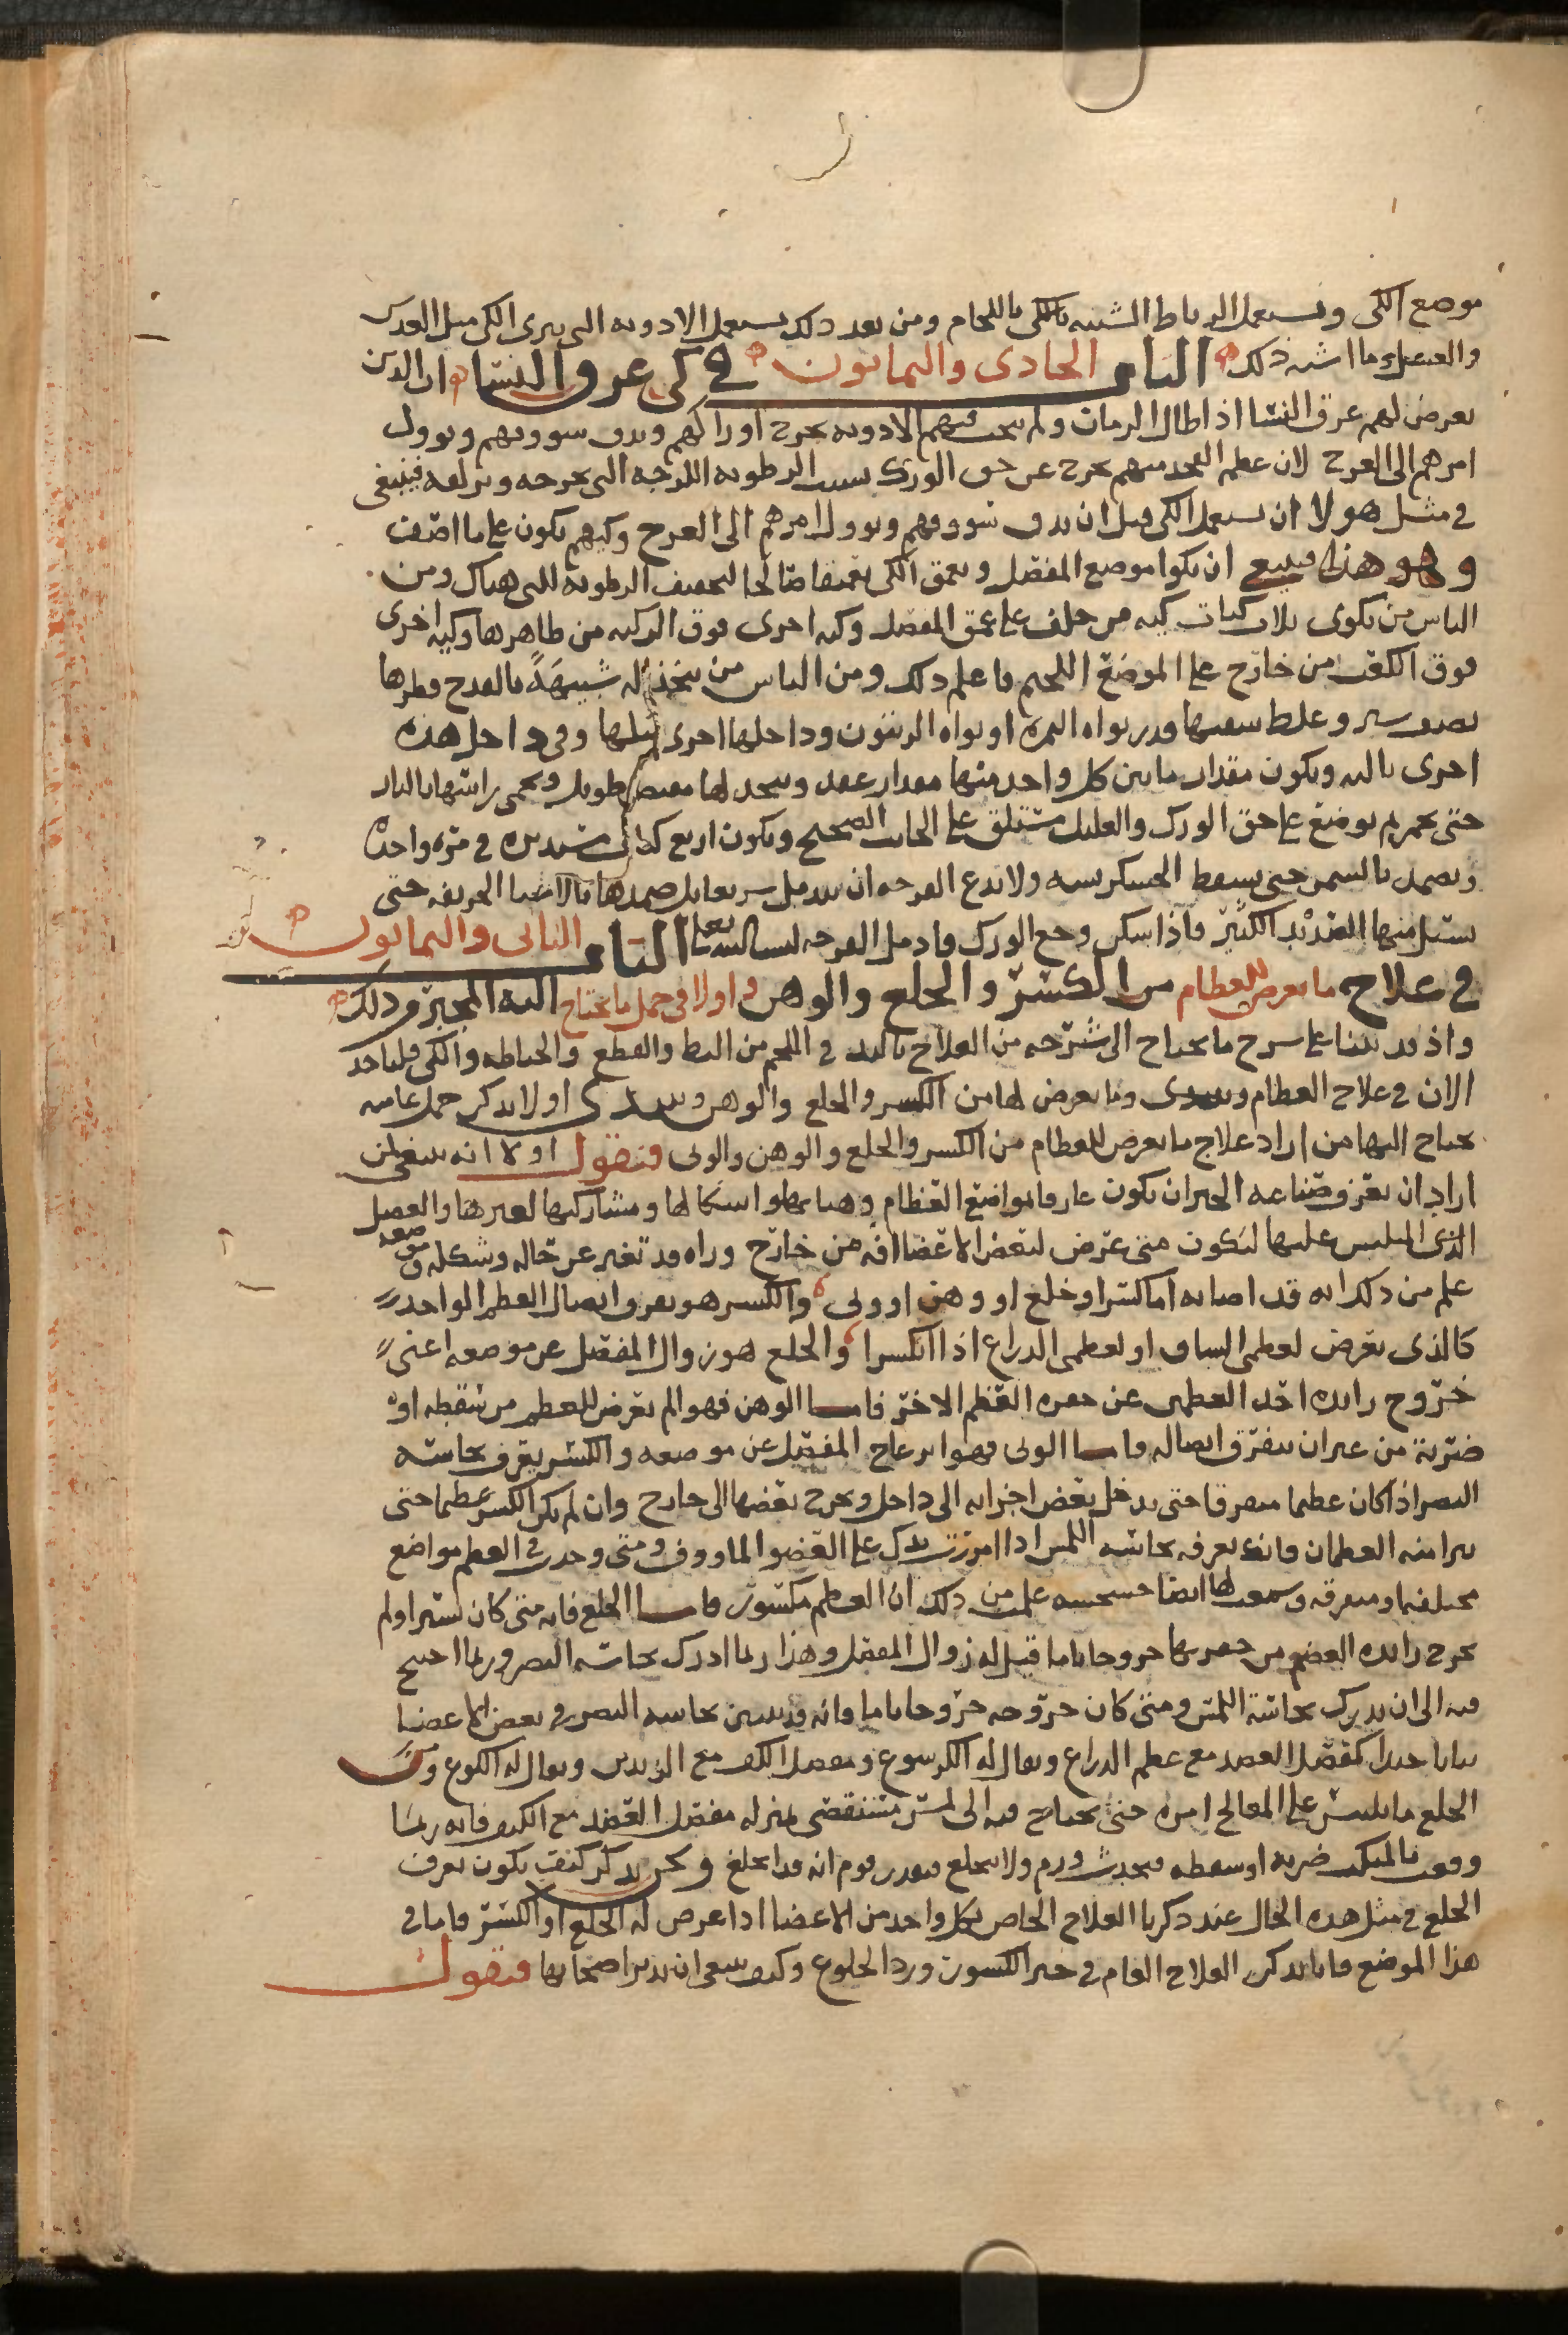 موضع الكى ويستعمل الرباط الشبيه باللجام ومن بعد ذلك يستعمل الادويه التى تبرى الكى مثل العدس
والعسل وما اشبه ذلك الباب الحادى والثمانون فى كى عرق النسا ان الذين
يعرض لهم عرق النسا اذا طال الزمان ولم تنجب فيهم الادويه تخرج اوراكهم وتدق سووقهم ويوول
امرهم الى العرج لان عظم الفخذ منهم يخرج عن حق الورك بسبب الرطوبه اللزجه التى تخرجه وتزلقه فينبغى
فى مثل هولا ان يستعمل الكى قبل ان تدق سووقهم ويوول امرهم الى العرج وكيهم يكون على ما اصف
وهو هذا فينبغى ان يكوا موضع المفصل ويعمق الكى تعميقا صالحا لتجفيف الرطوبه التى هناك ومن
الناس من يكوى ثلاث كيات كيه من خلف على عمق المفصل وكيه اخرى فوق الركبه من ظاهرها وكيه اخرى
فوق الكعب من خارج على الموضع اللحيم فاعلم ذلك ومن الناس من يتخذ اله شبيهة بالقدح قطرها
نصف شبر وغلظ شفتها قدر نواه التمره او نواه الزيتون وداخلها اخرى مثلها وفى داخل هذه
اخرى ثالثه ويكون مقدار ما بين كل واحد منها مقدار عقد ويتخذ لها مقبض طويل ويحمى راسها بالنار
حتى تحمر ثم يوضع على حق الورك والعليل مستلق على الجانب الصحيح ويكون اربع كيات مستديره فى مره واحده
وتضمد بالسمن حتى يسقط الخشكريشه ولا تدع القرحه ان تندمل سريعا بل ضمدها بالاشيا الحريفه حتى
يسيل منها الصديد الكثير فاذا سكن وجع الورك فادمل القرحه الباب الثانى والثمانون
فى علاج ما يعرض للعظام من الكسر والخلع والوهن واولا فى جمل ما يحتاج اليه المجبر من ذلك
واذ قد بينا على شرح ما يحتاج الى شرحه من العلاج باليد فى اللحم من البط والقطع والخياطه والكى فلناخذ
الان فى علاج العظام وما يعرض لها من الكسر والخلع والوهن ونبتدى اولا بذكر جمل عاميه
يحتاج اليها من اراد علاج ما يعرض للعظام من الكسر والخلع والوهن والوثى فنقول اولا انه ينبغى لمن
اراد ان يعرف صناعه الجبر ان يكون عارفا بمواضع العظام وهياتها واشكالها ومشاركتها لغيرها والعضل
الذى الملبس عليها ليكون متى عرض لبعض الاعضا افه من خارج وراه قد تغير عن حاله وشكله وموضعه
علم من ذلك انه قد اصابه اما كسر او خلع او وهن او وثى والكسر هو تفرق اتصال العظم الواحد
كالذى يعرض لعظمى الساق او لعظمى الذراع اذا انكسرا والخلع هو زوال المفصل عن موضعه اعنى
خروج زايده احد العظمين عن حفره العظم الاخر فاما الوهن فهو الم يعرض للعظم من سقطه او
ضربة من غير ان يتفرق اتصاله فاما الوثى فهو انزعاج المفصل عن موضعه والكسر يعرف بحاسه
البصر اذا كان عظيما متفرقا حتى يدخل بعض اجزايه الى داخل ويخرج بعضها الى خارج وان لم يكن الكسر عظيما حتى
يبرا منه العظمان فانه تعرفه بحاسه اللمس اذا امررت يدك على العضو الماووف ومتى وجدت فى العظم مواضع
مختلفه او متفرقه وسمعت لها ايضا خشخشه علمت من ذلك ان العظم مكسور فاما الخلع فانه متى كان يسيرا ولم
يخرج زايده العظم من حفرتها خروجا تاما قيل له زوال المفصل وهذا ربما ادرك بحاسه البصر وربما احتيج
فيه الى ان يدرك بحاسة اللمس ومتى كان خروجه خروجا تاما فانه قد يتبين بحاسه البصر فى بعض الاعضا
بيانا جيدا كمفصل العضد مع عظم الذراع ويقال له الكرسوع ومفصل الكف مع الزندين ويقال له الكوع ومن
الخلع ما يلتبس على المعالج امره حتى يحتاج فيه الى لمس مستقصى بمنزله مفصل العضد مع الكتف فانه ربما
وقعت بالمنكب ضربه او سقطه فيحدث ورم ولا ينخلع فيقدر قوم انه قد انخلع ونحن نذكر كيف يكون تعرف
الخلع فى مثل هذه الحال عند ذكرنا العلاج الخاص بكل واحد من الاعضا اذا عرض له الخلع او الكسر فاما فى
هذا الموضع فانا نذكر العلاج العام فى جبر الكسور ورد الخلوع وكيف ينبغى ان يدبر اصحابها فنقول